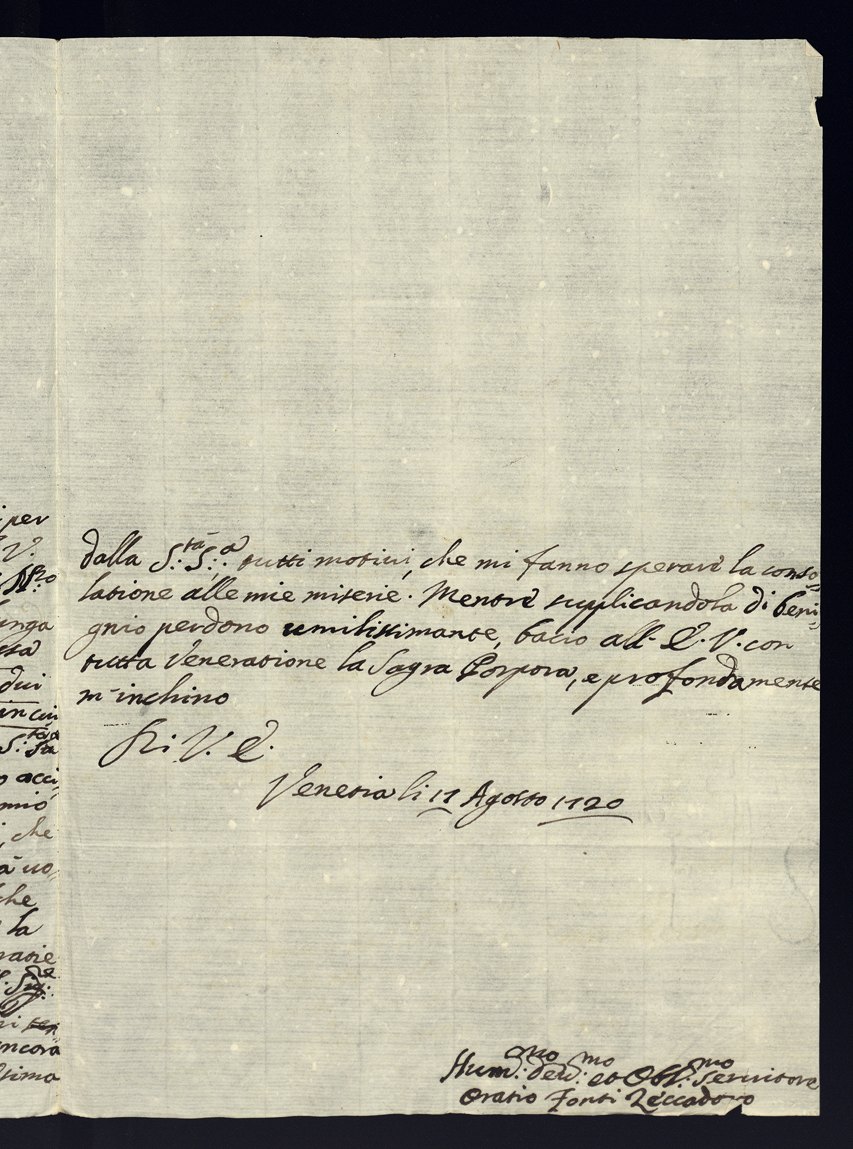 per
V.
N.ro
unga
dui
in cui
S.tà Sta
o acci-
mio
, che
uo-
che
la
razie
ancora
tima
dalla S.:tà S.:a tutti motivi, che mi fanno sperare la conso-
latione alle mie miserie. Mentre supplicandola di beni-
gnio perdono umilissimante, bacio all' E. V. con
tutta Veneratione la Sagra Porpora, e profondamente
m' inchino
Di V. E.
Venetia li 17 Agosto 1720
Hum.mo deu.mo et Obl.mo Seruitore
Oratio Fonti Zeccadoro